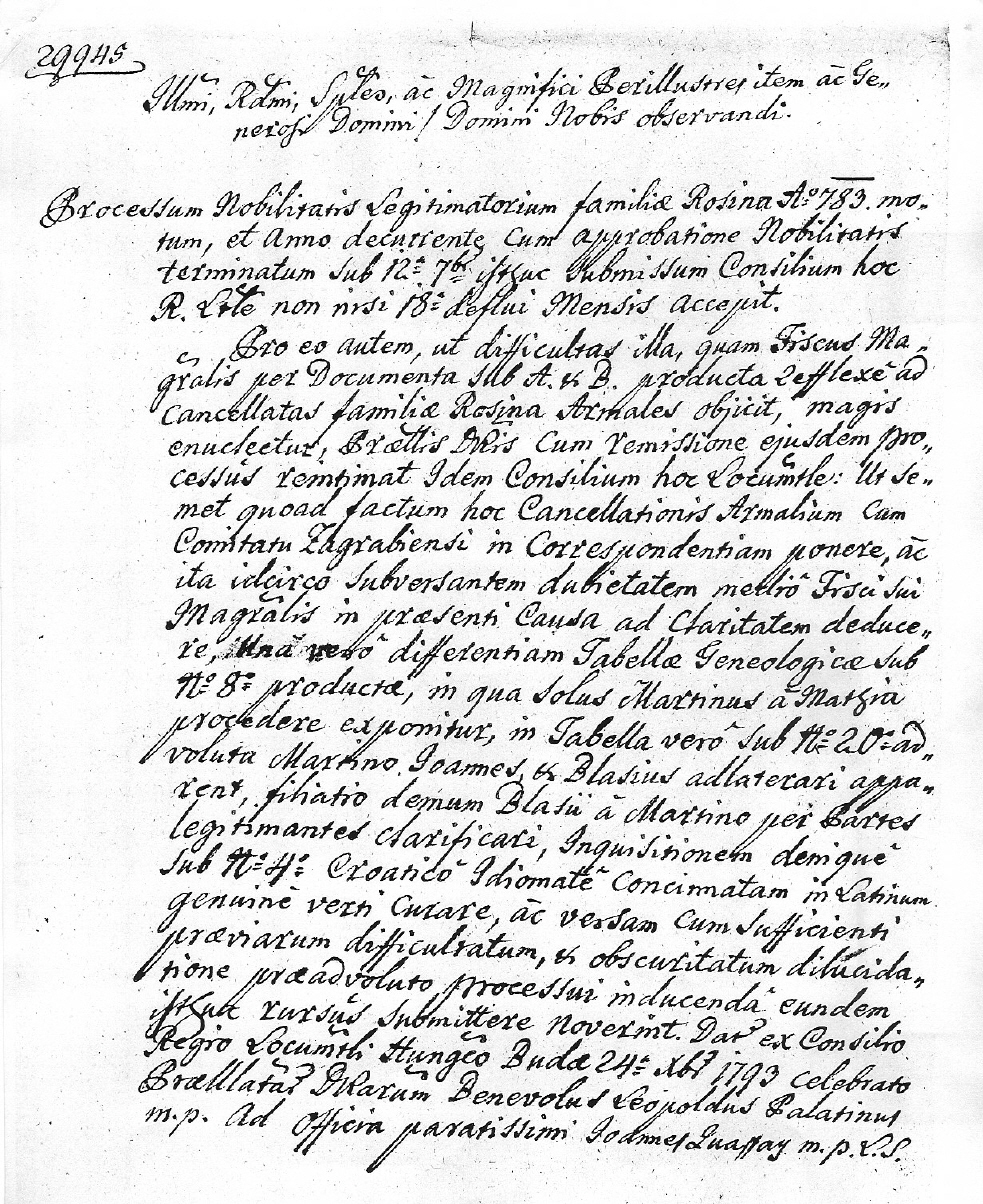 29945
Illmi, Rdmi, Sples, ac Magnifici Perillustres item ac Ge„
nerosi Domini! Domini Nobis observandi.
Processum Nobilitatis Legitimatorium familiæ Rosina Aº 783. mo„
tum, et Anno decurrente Cum approbatione Nobilitatis
terminatum sub 12ª 7br isthuc submissum Consilium hoc
R. Lrle non nisi 18ª deflui Mensis accepit.
Pro eo autem, ut difficultas illa, quam Fiscus Ma„
gralis per Documenta sub A. & B. producta reflexe ad
Cancellatas familiæ Rosina Armales objicit, magis
enucleetur, Prættis DVris Cum remissione ejusdem pro„
cessus reintimat Idem Consilium hoc Locumtle: Ut se„
met quoad factum hoc Cancellationis Armalium Cum
Comitatu Zagrabiensi in Correspondentiam ponere, ac
ita idcirco subversantem dubietatem medio Fisci sui
Magralis in præsenti Causa ad Claritatem deduce„
re, Una vero differentiam Tabellæ Geneologicæ sub
Nº 8º productæ, in qua solus Martinus a Mathia
procedere exponitur, in Tabella vero sub Nº 20º ad„
voluta Martino Joannes, & Blasius adlaterari appa„
rent, filiatio demum Blasii a Martino per Partes
legitimantes Clarificari, Inquisitionem denique
sub Nº 4º Croatico Idiomate Concinnatam in Latinum
genuine verti Curare, ac versam Cum sufficienti
præviarum difficultatum, & obscuritatum dilucida„
tione præadvoluto processui inducenda eundem
isthuc rursus submittere noverint. Dat ex Consilio
Regio Locumtli Hungco Budæ 24ª xbr 1793 celebrato
Prællatar DVrarum Benevolus Leopoldus Palatinus
m.p. Ad officia paratissimi Joannes m.p. L.S.